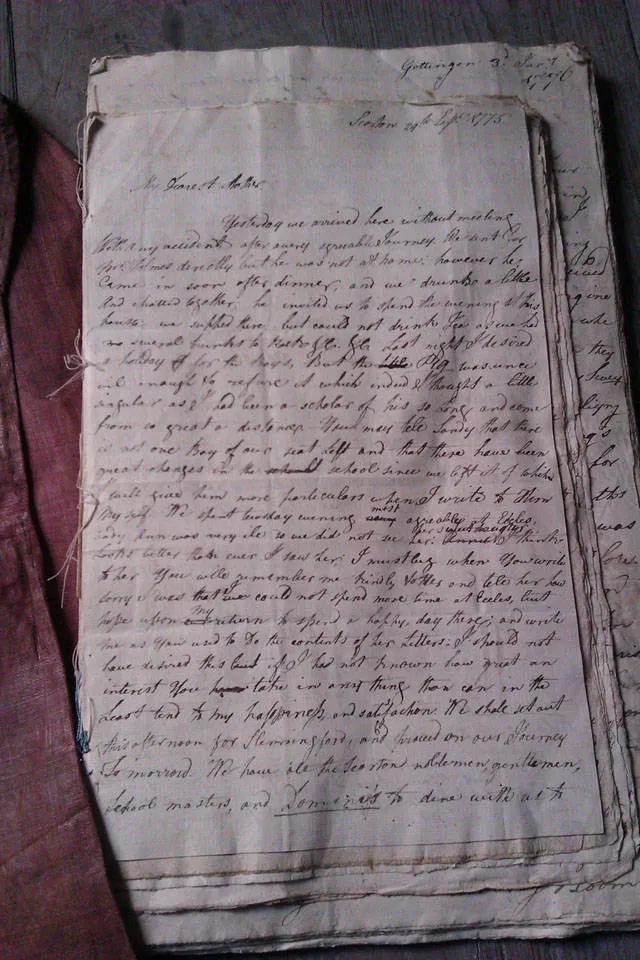 Gottingen 3d Janry
1776
Scorton 29th Sepr. 1775
My Dearest Mother
Yesterday we arrived here without meeting
With any accident after a very agreable Journey. We sent for
Mr. Holmes directly but he was not at home; however he
Came in soon after dinner, and we drunk a little
And chatted together; he invited us to spend the evening at his
house; we supped there but could not drink Tea as we had
no several trunks to &c. &c. Last night I desired
a holiday for the Boys, But the Pig was unci
vil enough to refuse it which indeed I thought a little
singular as I had been a scholar of his so long and come
from so great a distance. You may tell Sandy that there
is not one Boy of our seat left and that there have been
great changes in the school since we left it of which
I will give him more particulars when I write to him
My self. We spent tuesday evening most agreably at Eccles.
Lady Ann was very ill so we did not see her; I think
looks better than ever I saw her; I must beg when You write
to her You will remember me kindly to her and tell her how
sorry I was that we could not spend more time at Eccles, but
hope upon my return to spend a happy day there; and write
me as You used to Do the contents of her Letters; I should not
have desired this if I had not known how great an
interest You take in any thing than can in the
Least tend to my happiness, and satisfaction. We shall set out
this afternoon for Slenningford, and proceed on our Journey
To morrow. We have all the Scorton noblemen, gentlemen,
School masters, and Domini's to dine with us to
they
for
was